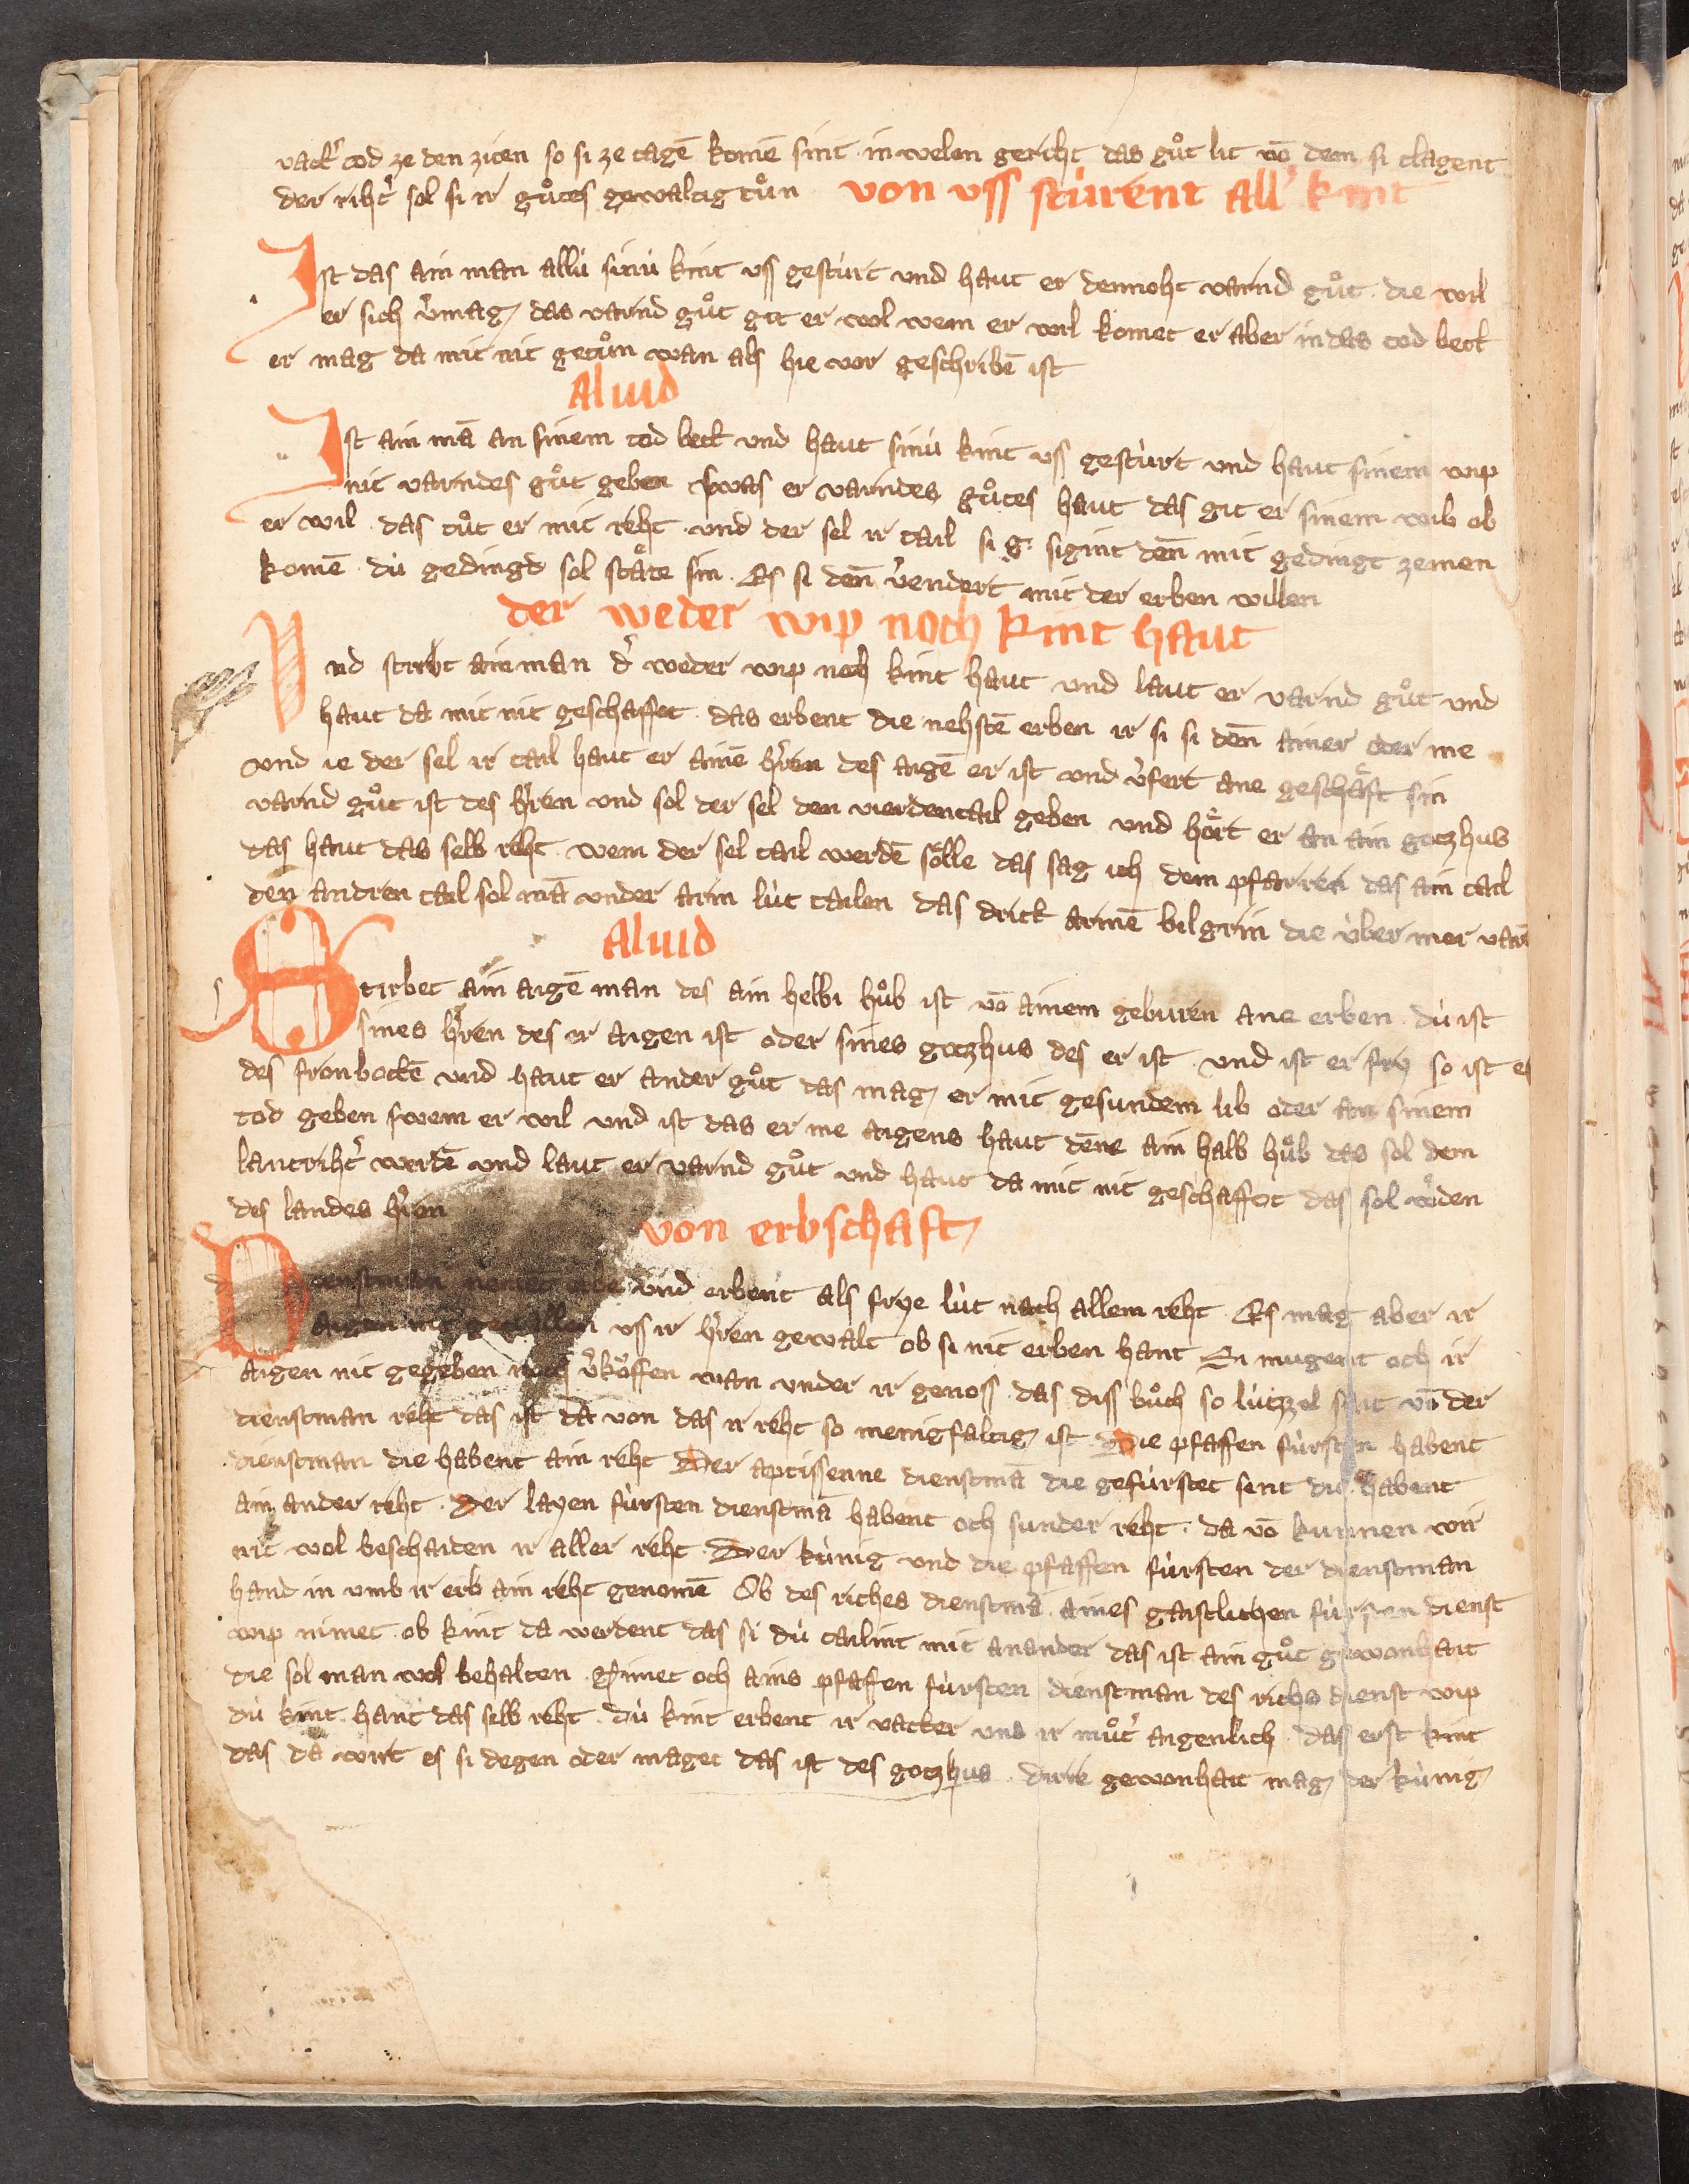 vatt͛ tod ze den ziten so si ze tagē komē sint in welen gericht das gůt lit vō dem si clagent
der riht͛ sol si ir gůtes gewaltig tůn von vss stúrent all͛ kint
Ist das ain man allú sinú kint vss gestúrt vnd haut er dennoht varind gůt die wil
er sich v͛mag das varind gůt git er wol wem er wil komet er aber in das tod bett
er mag da mit nit getůn wan als hie vor geschribē ist
Aliud
Ist ain mā an sinem tod bett vnd haut sinú kint vss gestúrt vnd haut sinem wip
nit varindes gůt geben swas er varindes gůtes haut das git er sinem wib ob
er wil das tůt er mit reht vnd der sel ir tail si g sigint deñ mit gedingt zemen
komē dú gedingd sol stäte sin Es si deñ v͛endert mit der erben willen
der weder wip noch kint haut
Vnd stirbt ain man d͛ weder wip noch kint haut vnd laut er varind gůt vnd
haut da mit nit geschaffet das erbent die nehstē erben ir si si deñ ainer oder me
vnd ie der sel ir tail haut er ainē h͛ren des aigē er ist vnd v͛fert ane geschäft sin
varind gůt ist des h͛ren vnd sol der sel den vierdentail geben vnd hört er an ain gotzhus
das haut das selb reht wem der sel tail werdē sölle das sag ich dem pfarren das ain tail
den andren tail sol mā vnder arm lút tailen das dritt armē bilgrin die úber mer varē
Aliud
Stirbet ain aigē man des ain helbi hůb ist vō ainem geburen ane erben dú ist
sines h͛ren des er aigen ist oder sines gotzhus des er ist vnd ist er fry so ist es
des fronbottē vnd haut er ander gůt das mag er mit gesundem lib oder an sinem
tod geben swem er wil vnd ist das er me aigens haut dēne ain halb hůb das sol dem
lantriht͛ werdē vnd laut er varind gůt vnd haut da mit nit geschaffet das sol w͛den
des landes h͛ren
von erbschaft
Dienstman vnd erbent als frye lút nach allem reht Es mag aber ir
aigen nit geuallen vss ir h͛ren gewalt ob si nit erben hant Si mugent och ir
aigen nit gegeben noch v͛köffen wan vnder ir genoss das diss bůch so lútzzel sait vō der
dienstman reht das ist da von das ir reht so menigfaltig ist Die pfaffen fúrsten habent
dienstman die habent ain reht Der aptissenne dienstmā die gefúrstet sint die habent
ain ander reht Der layen fúrsten dienstmā habent och sunder reht da vō kunnen wir
nit wol beschaiden ir aller reht Der kúnig vnd die pfaffen fúrsten der dienstman
hand in vmb ir erb ain reht genomē Ob des riches dienstmā aines gaistlichen fúrsten dienst
wip nimet ob kint da werdent das si dú tailint mit anander das ist ain gůt gewonhait
die sol man wol behalten Nimet och ains pfaffen fúrsten dienstman des richs dienst wip
dú kint hant das selb reht dú kint erbent ir vatter vnd ir můt͛ aigenlich das erst kint
das da wirt es si degen oder maget das ist des gotzhus dirre gewonhait mag der kúnig